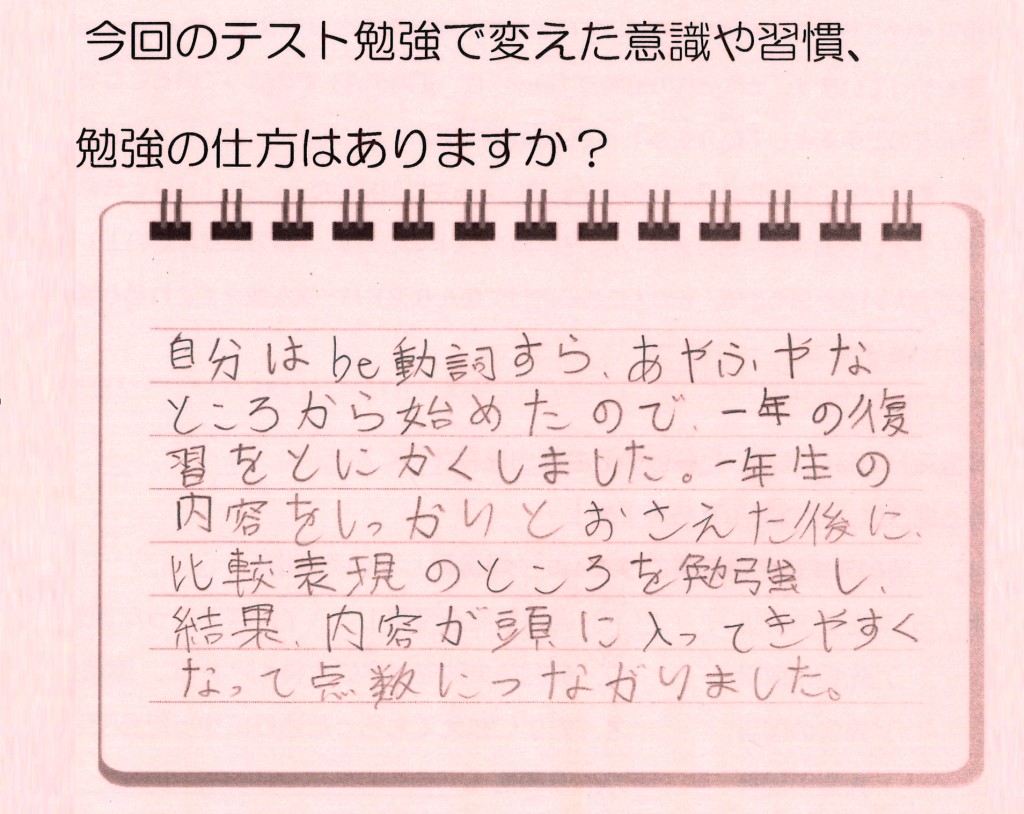 今回のテスト勉強で変えた意識や習慣、
勉強の仕方はありますか？
自分はbe動詞すら、あやふやな
ところから始めたので、一年の復
習をとにかくしました。一年生の
内容をしっかりとおさえた後に、
比較表現のところを勉強し、
結果、内容が頭に入ってきやすく
なって点数につながりました。